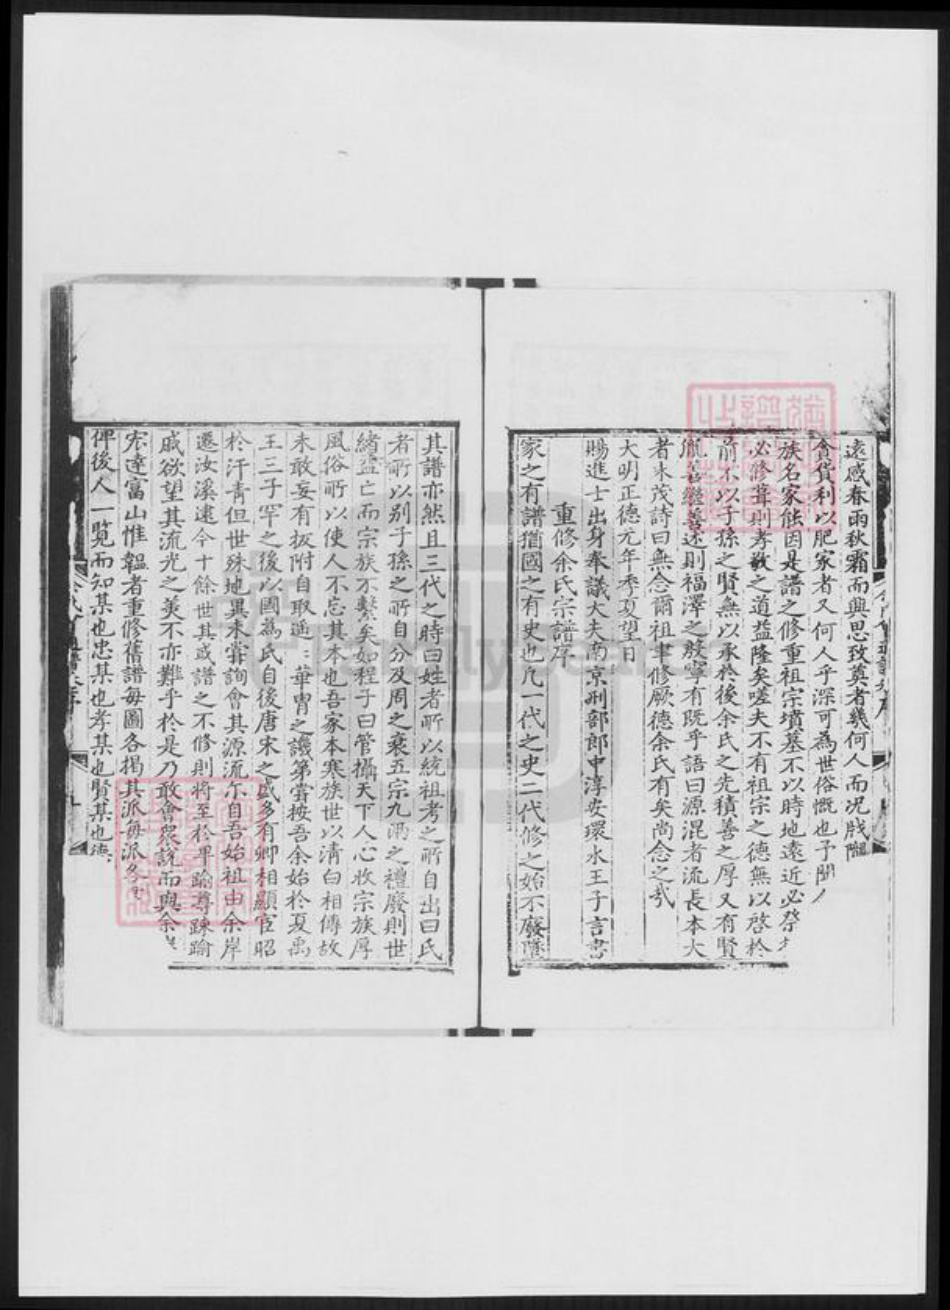 遠感春雨秋霜而興思致奠者幾何人而况戕
貪貨利以肥家者又何人乎深可為世俗慨也予聞
族名家能因是譜之修重祖宗墳墓不以時地遠近必祭
必修葺則孝敬之道益隆矣嗟夫不有祖宗之德無以啓於
前不以子孫之賢無以承於後余氏之先積善之厚又有賢
胤善繼善述則福澤之發寧有既乎語曰源混者流長本大
者末茂詩曰無念爾祖聿修厥德余氏有矣尚念之㢤
大明正德元年季夏望日
賜進士出身奉議大夫南京刑部郎中淳安環水王子言書
重修余氏宗譜序
家之有譜猶國之有史也凡一代之史二代修之始不廢墜
其譜亦然且三代之時曰姓者所以統祖考之所自出曰氏
者所以别子孫之所自分及周之衰五宗九兩之禮廢則世
緒益亡而宗族不繫矣如程子曰管攝天下人心收宗族厚
風俗所以使人不忘其本也吾家本寒族世以清白相傳故
未敢妄有扳附自取遥遥華胄之譏第嘗按吾余始於夏禹
王三子罕之後以國為氏自後唐宋之盛多有卿相顯宦昭
於汗青但世殊地異未嘗詢會其源流尔自吾始祖由余岸
遷汝溪逮今十餘世其或譜之不修則將至於卑踰尊踈踰
戚欲望其流光之羙不亦難乎於是乃敢會衆説而與余
宪逹富山惟韞者重修舊譜每圖各揭其派每派
俾後人一覧而知某也忠某也孝某也賢某也德